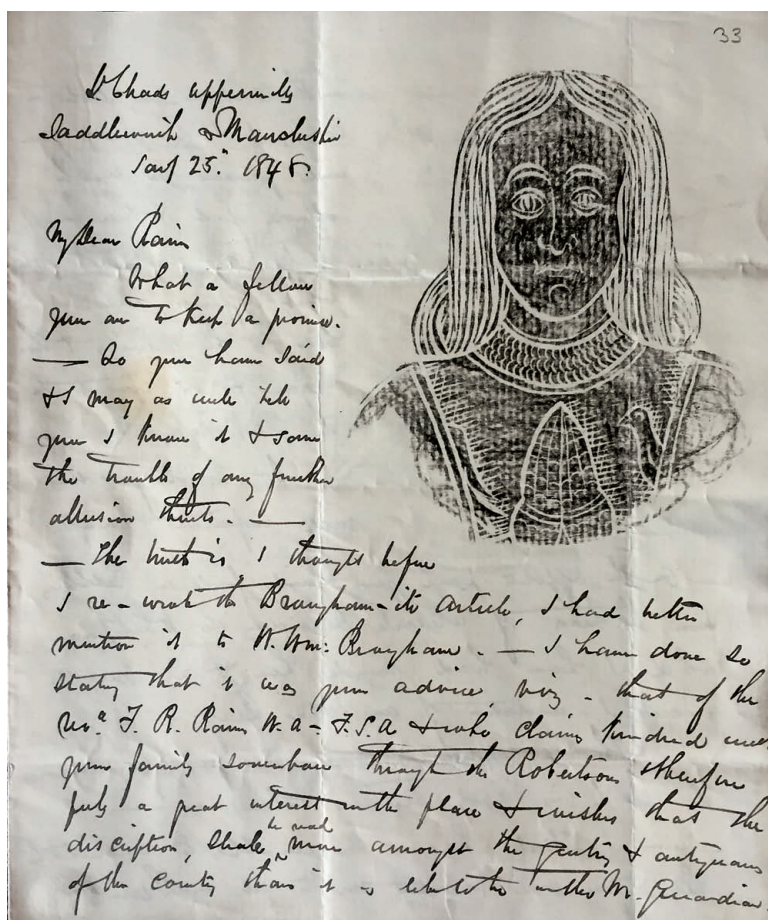 33
St. Chads uppermill
Saddleworth Manchester
Sept 25. 1848.
My Dear Rain
What a fellow
you are to keep a promise.
— So you have said
& I may as well tell
you I know it & save
the trouble of any further
allusion thereto. —
— The truth is I thought before
I re-wrote the Brougham-ite article, I had better
mention it to W. Wm: Brougham. — I have done so
stating that it was your advice, viz - that of the
Revd. F. R. Raines M.A - F.S.A & who claims kindred with
your family somehow through the Robertsons & therefore
feels a great interest in the place & wishes that the
discription, shall be read more amongst the gentry & antiquaries
of the county than it is like to be in the M. Guardian.